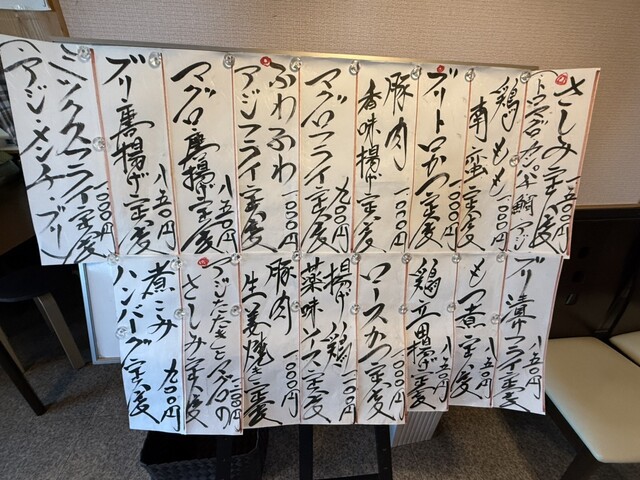 さしみ定食 一五〇〇円
トロマグロ カンパチ 鯛 アジ
鶏もも 一〇〇〇円
南蛮定食
ブリトロかつ定食 一〇〇〇円
豚肉 一〇〇〇円
香味揚げ定食
マグロフライ定食 九〇〇円
ふわふわ
アジフライ定食 一〇〇〇円
マグロ唐揚げ定食 八五〇円
ブリ唐揚げ定食 八五〇円
ミックスフライ定食 一〇〇〇円
アジ・メンチ・ブリ
ブリ漬けフライ定食 八五〇円
もつ煮定食 八五〇円
鶏立田揚げ定食 八五〇円
ロースかつ定食 一〇〇〇円
揚げ鶏 一〇〇〇円
薬味ソース定食
豚肉 一〇〇〇円
生姜焼き定食
アジたたきとマグロの
さしみ定食
煮こみ 九〇〇円
ハンバーグ定食